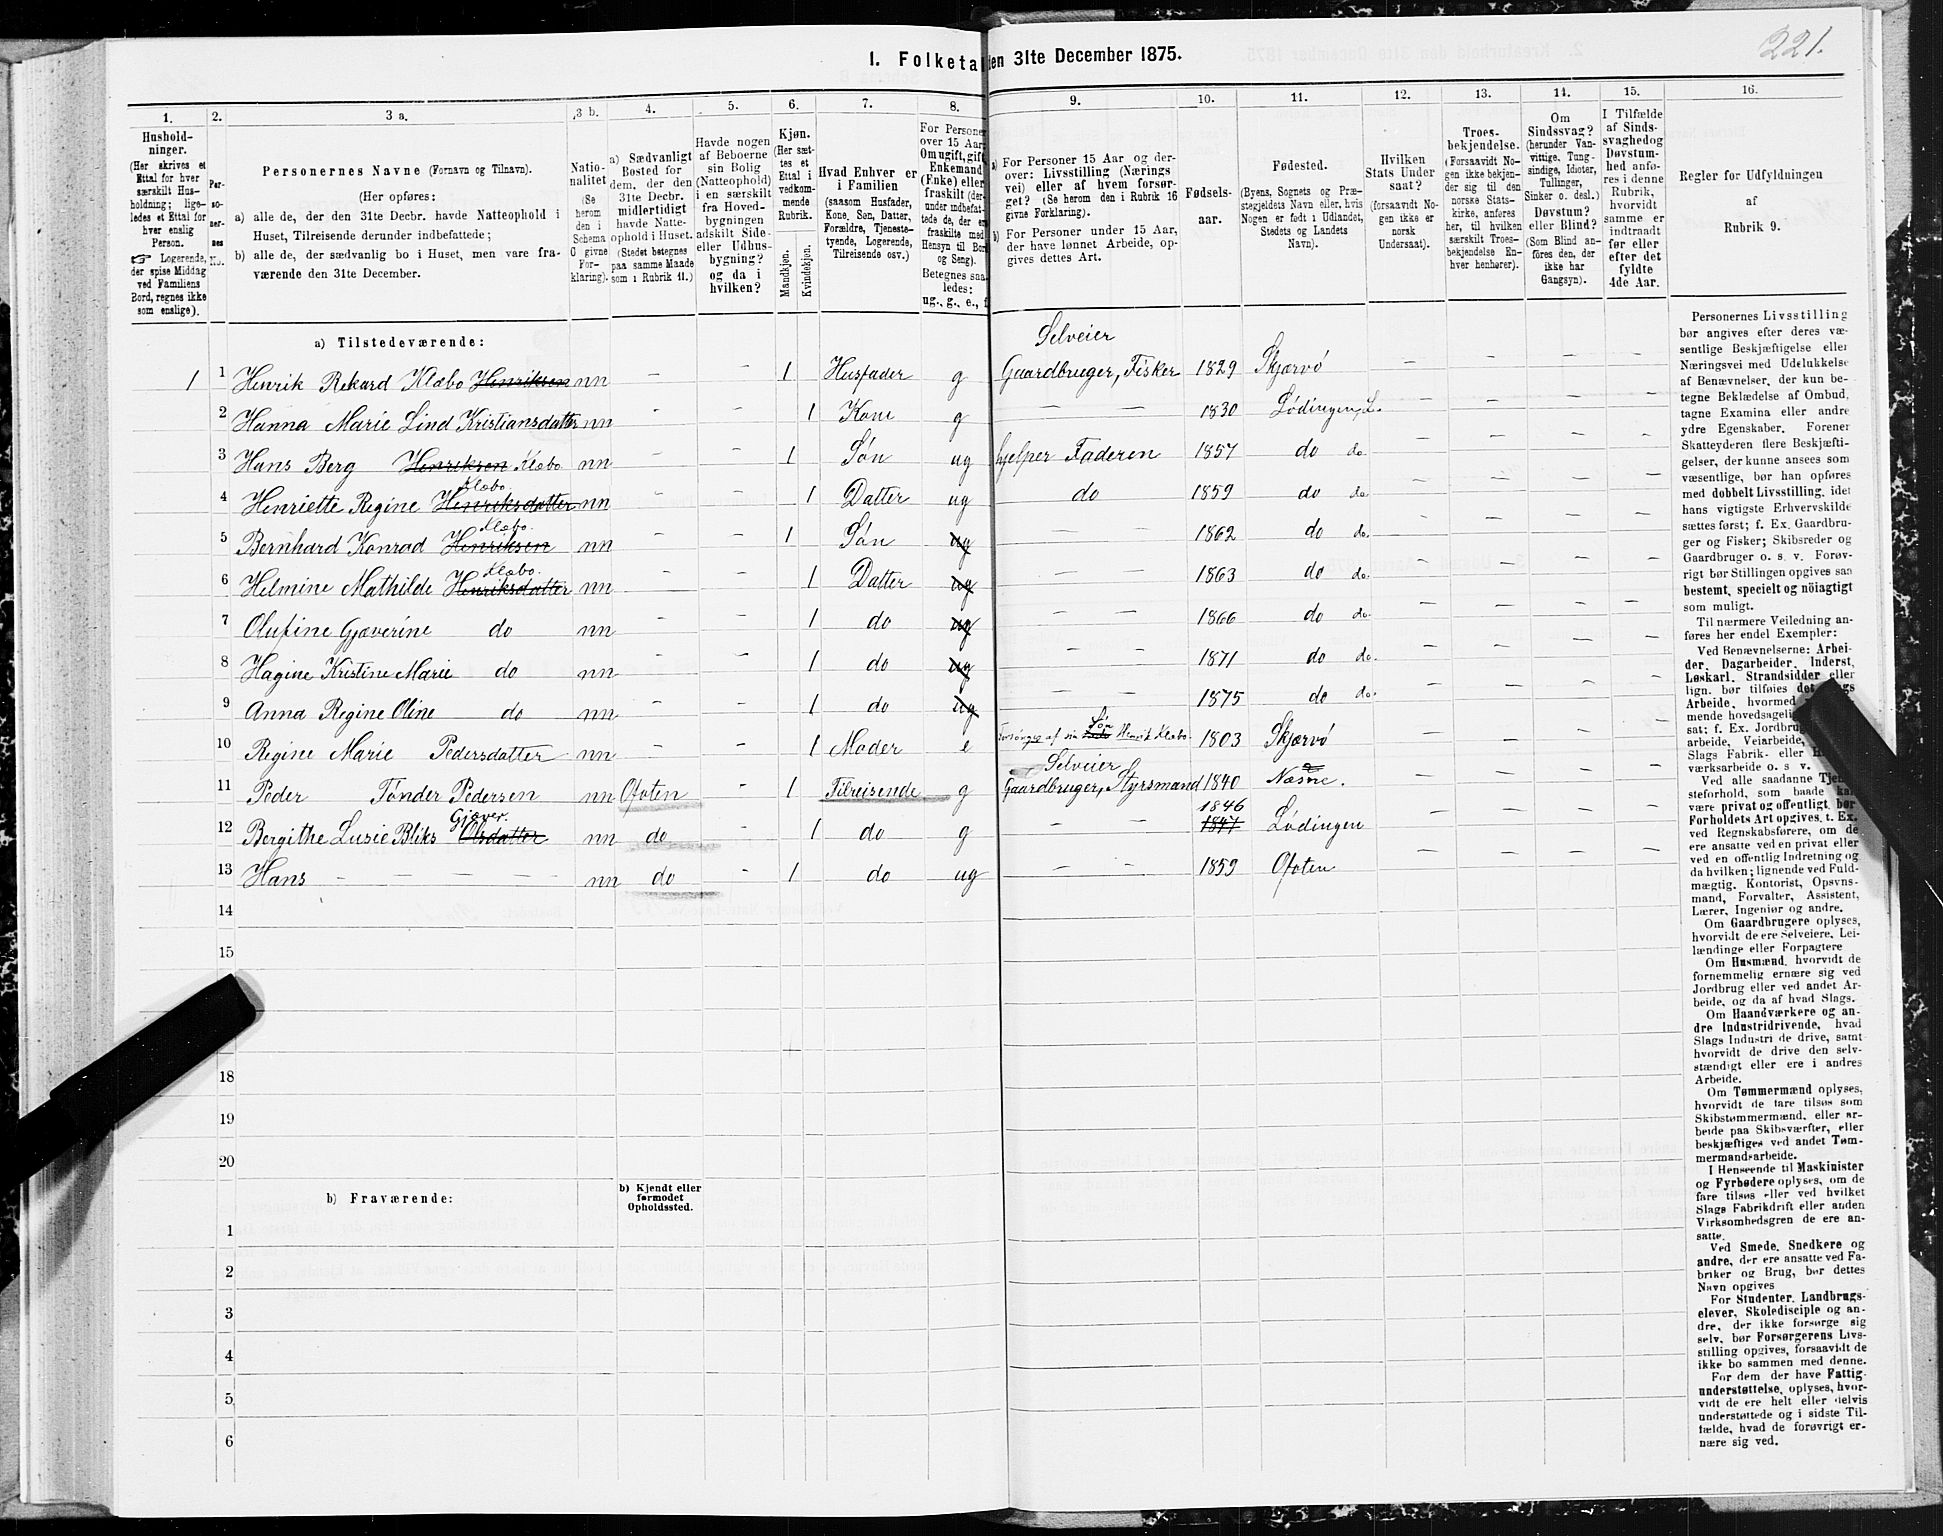 221.
1. Folketa den 31te December 1875.
1. 2. 3 a. 3 b. 4. 5. 6. 7. 8. 9. 10. 11. 12. 13. 14. 15. 16.
Hushold-
ninger.
(Her skrives et
Ettal for hver
særskilt Hus-
holdning; lige-
ledes et Ettal for
hver enslig
Person.
☞ Logerende,
der spise Middag
ved Familiens
Bord, regnes ikke
som enslige).
Per-
so-
ner-
nes
No.
Personernes Navne (Fornavn og Tilnavn).
(Her opføres:
a) alle de, der den 31te Decbr. havde Natteophold i
Huset, Tilreisende derunder indbefattede;
b) alle de, der sædvanlig bo i Huset, men vare fra-
værende den 31te December.
Natio-
nalitet
(Se
herom
den i
Schema
O givne
For-
klaring).
a) Sædvanligt
Bosted for
dem, der den
31te Decbr.
midlertidigt
havde Natte-
ophold i Huset.
(Stedet betegnes
paa samme Maade
som i Rubrik 11.)
Havde nogen
af Beboerne
sin Bolig
(Natteophold)
i en særskilt
fra Hoved-
bygningen
adskilt Side-
eller Udhus-
bygning?
og da i
hvilken?
Kjøn.
(Her sæt-
tes et
Ettal i
vedkom-
mende
Rubrik.
Mandkjøn.
Kvindekjøn.
Hvad Enhver er
i Familien
(saasom Husfader,
Kone, Søn, Datter,
Forældre, Tjeneste-
tyende, Logerende,
Tilreisende osv.)
For Personer
over 15 Aar:
Om ugift, gift,
Enkemand
(Enke) eller
fraskilt (der-
under indbefat-
tede de, der ere
fraskilte med
Hensyn til Bord
og Seng).
Betegnes saa-
ledes:
ug., g., e., f.
a) For Personer 15 Aar og der-
over: Livsstilling (Nærings
vei) eller af hvem forsør-
get? (Se herom den i Rubrik 16
givne Forklaring).
b) For Personer under 15 Aar,
der have lønnet Arbeide, op-
gives dettes Art.
Fødsels-
aar.
Fødested.
(Byens, Sognets og Præ-
stegjeldets Navn eller, hvis
Nogen er født i Udlandet,
Stedets og Landets
Navn).
Hvilken
Stats Under
saat?
(forsaavidt No-
gen ikke er
norsk
Undersaat).
Troes-
bekjendelse.
(Forsaavidt No-
gen ikke bekjen-
der sig til den
norske Stats-
kirke, anføres
her, til hvilken
særskilt Troes-
bekjendelse En-
hver henhører).
Om
Sindssvag?
(herunder Van-
vittige, Tung-
sindige, Idioter,
Tullinger,
Sinker o. desl.)
Døvstum?
eller Blind?
(Som Blind an-
føres den, der
ikke har
Gangsyn).
I Tilfælde
af Sinds-
svaghed og
Døvstum-
hed anfø-
res i denne
Rubrik,
hvorvidt
samme er
indtraadt
før eller
efter det
fyldte
4de Aar.
Regler for Udfyldningen
af
Rubrik 9.
a) Tilstedeværende:
Selveier
1 1 Henrik Rekard Klæbo Henriksen nn - - 1 Husfader g Gaardbruger, Fisker 1829 Skjærvö - - - -
2 Hanna Marie Lind Kristiansdatter nn - - 1 Kone g - - 1830 Lödingen, L. - - - -
3 Hans Berg Henriksen Klæbo nn - - 1 Søn ug hjelper Faderen 1857 do do. - - - -
Klæbo.
4 Henriette Regine Henriksdatter nn - - 1 Datter ug do 1859 do do. - - - -
Klæbo.
5 Bernhard Konrad Henriksen nn - - 1 Søn ug - - 1862 do do. - - - -
Klæbo.
6 Helmine Mathilde Henriksdatter nn - - 1 Datter ug - - 1863 do do. - - - -
7 Olufine Gjæverine do nn - - 1 do ug - - 1866 do do. - - - -
8 Hagine Kristine Marie do nn - - 1 do ug - - 1871 do do. - - - -
9 Anna Regine Oline do nn - - 1 do ug - - 1875 do do. - - - -
Søn
10 Regine Marie Pedersdatter nn - - 1 Moder e Forsörges af sin Henrik Klæbo. 1803 Skjærvö - - - -
Selveier
11 Peder Tønder Pedersen nn Ofoten - 1 Tilreisende g Gaardbruger, Styrsmand 1840 Næsne. - - - -
Gjæver. 1846
12 Bergithe Lusie Bliks Olsdatter nn do - 1 do g - - 1847 Lödingen - - - -
13 Hans - - - - nn do - 1 do ug - - 1859 Ofoten - - - -
14
15
18
19
20
b) Fraværende:
b) Kjendt eller
formodet
Opholdssted.
1
2
3
4
5
6
Personernes Livsstilling
bør angives efter deres væ-
sentlige Beskjæftigelse eller
Næringsvei med Udelukkelse
af Benævnelser, der kun be-
tegne Beklædelse af Ombud,
tagne Examina eller andre
ydre Egenskaber. Forener
Skatteyderen flere Beskjæfti-
gelser, der kunne ansees som
væsentlige, bør han opføres
med dobbelt Livsstilling, idet
hans vigtigste Erhvervskilde
sættes først; f. Ex. Gaardbru-
ger og Fisker; Skibsreder og
Gaardbruger o. s. v. Forøv-
rigt bør Stillingen opgives saa
bestemt, specielt og nöiagtigt
som muligt.
Til nærmere Veiledning an-
føres her endel Exempler:
Ved Benævnelserne: Arbei-
der, Dagarbeider, Inderst,
Løskarl, Strandsidder eller
lign. bør tilføies det Slags
Arbeide, hvormed
mende hovedsageli
sat; f. Ex. Jordbrug
arbeide, Veiarbeide,
Slags Fabrik- eller H
værksarbeide o. s. v.
Ved alle saadanne Tjen
steforhold, som baade kan
være privat og offentligt, bør
Forholdets Art opgives, t. Ex.
ved Regnskabsførere, om de
ere ansatte ved en privat eller
ved en offentlig Indretning og
da hvilken; lignende ved Fuld-
mægtig, Kontorist, Opsyns-
mand, Forvalter, Assistent,
Lærer, Ingeniør og andre.
Om Gaardbrugere oplyses,
hvorvidt de ere Selveiere, Lei-
lændinge eller Forpagtere
Om Husmænd, hvorvidt de
fornemmelig ernære sig ved
Jordbrug eller ved andet Ar-
beide, og da af hvad Slags.
Om Haandværkere og an-
dre Industridrivende, hvad
Slags Industri de drive, samt
hvorvidt de drive den selv-
stændigt eller ere i andres
Arbeide.
Om Tømmermænd oplyses,
hvorvidt de fare tilsøs som
Skibstømmermænd, eller ar-
beide paa Skibsværfter, eller
beskjæftiges ved andet Tøm-
mermandsarbeide.
I Henseende til Maskinister
og Fyrbødere oplyses, om de
fare tilsøs eller ved hvilket
Slags Fabrikdrift eller anden
Virksomhedsgren de ere an-
satte.
Ved Smede, Snedkere og
andre, der ere ansatte ved Fa-
briker og Brug, bør dettes
Navn opgives
For Studenter, Landbrugs-
elever, Skoledisciple og an-
dre, der ikke forsørge sig
selv, bør Forsørgerens Livs-
stilling opgives, forsaavidt de
ikke bo sammen med denne.
For dem der have Fattig-
understøttelse, oplyses, hvor-
vidt de ere helt eller delvis
understøttede og i sidste Til-
fælde, hvad de forøvrigt er-
nære sig ved.